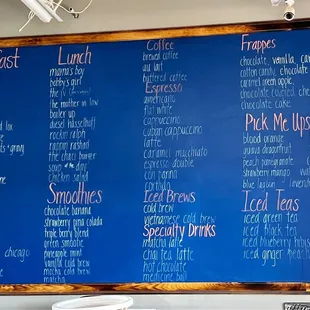 Lunch
mama's boy
bobby's girl
the mother in law
boiler up
rockin ralph
soup of the day
chicken salad
Smoothies
chocolate banana
strawberry pina colada
triple berry blend
green smoothie
pineapple mint
vanilla cold brew
mocha cold brew
chicago
Coffee
brewed coffee
au lait
buttered coffee
Espresso
americano
flat white
cappuccino
cuban cappuccino
latte
caramel macchiato
espresso double
con panna
cortado
Iced Brews
cold brew
vietnamese cold brew
Specialty Drinks
matcha latte
chai tea latte
hot chocolate
medicine ball
Frappes
chocolate, vanilla,
cotton candy, chocolate
caramel green apple,
chocolate covered
chocolate cake
Pick Me Ups
blood orange
guava dragonfruit
peach pomegranate
strawberry mango
blue lagoon
Iced Teas
iced green tea
iced black tea
iced blueberry hibis
iced ginger peach